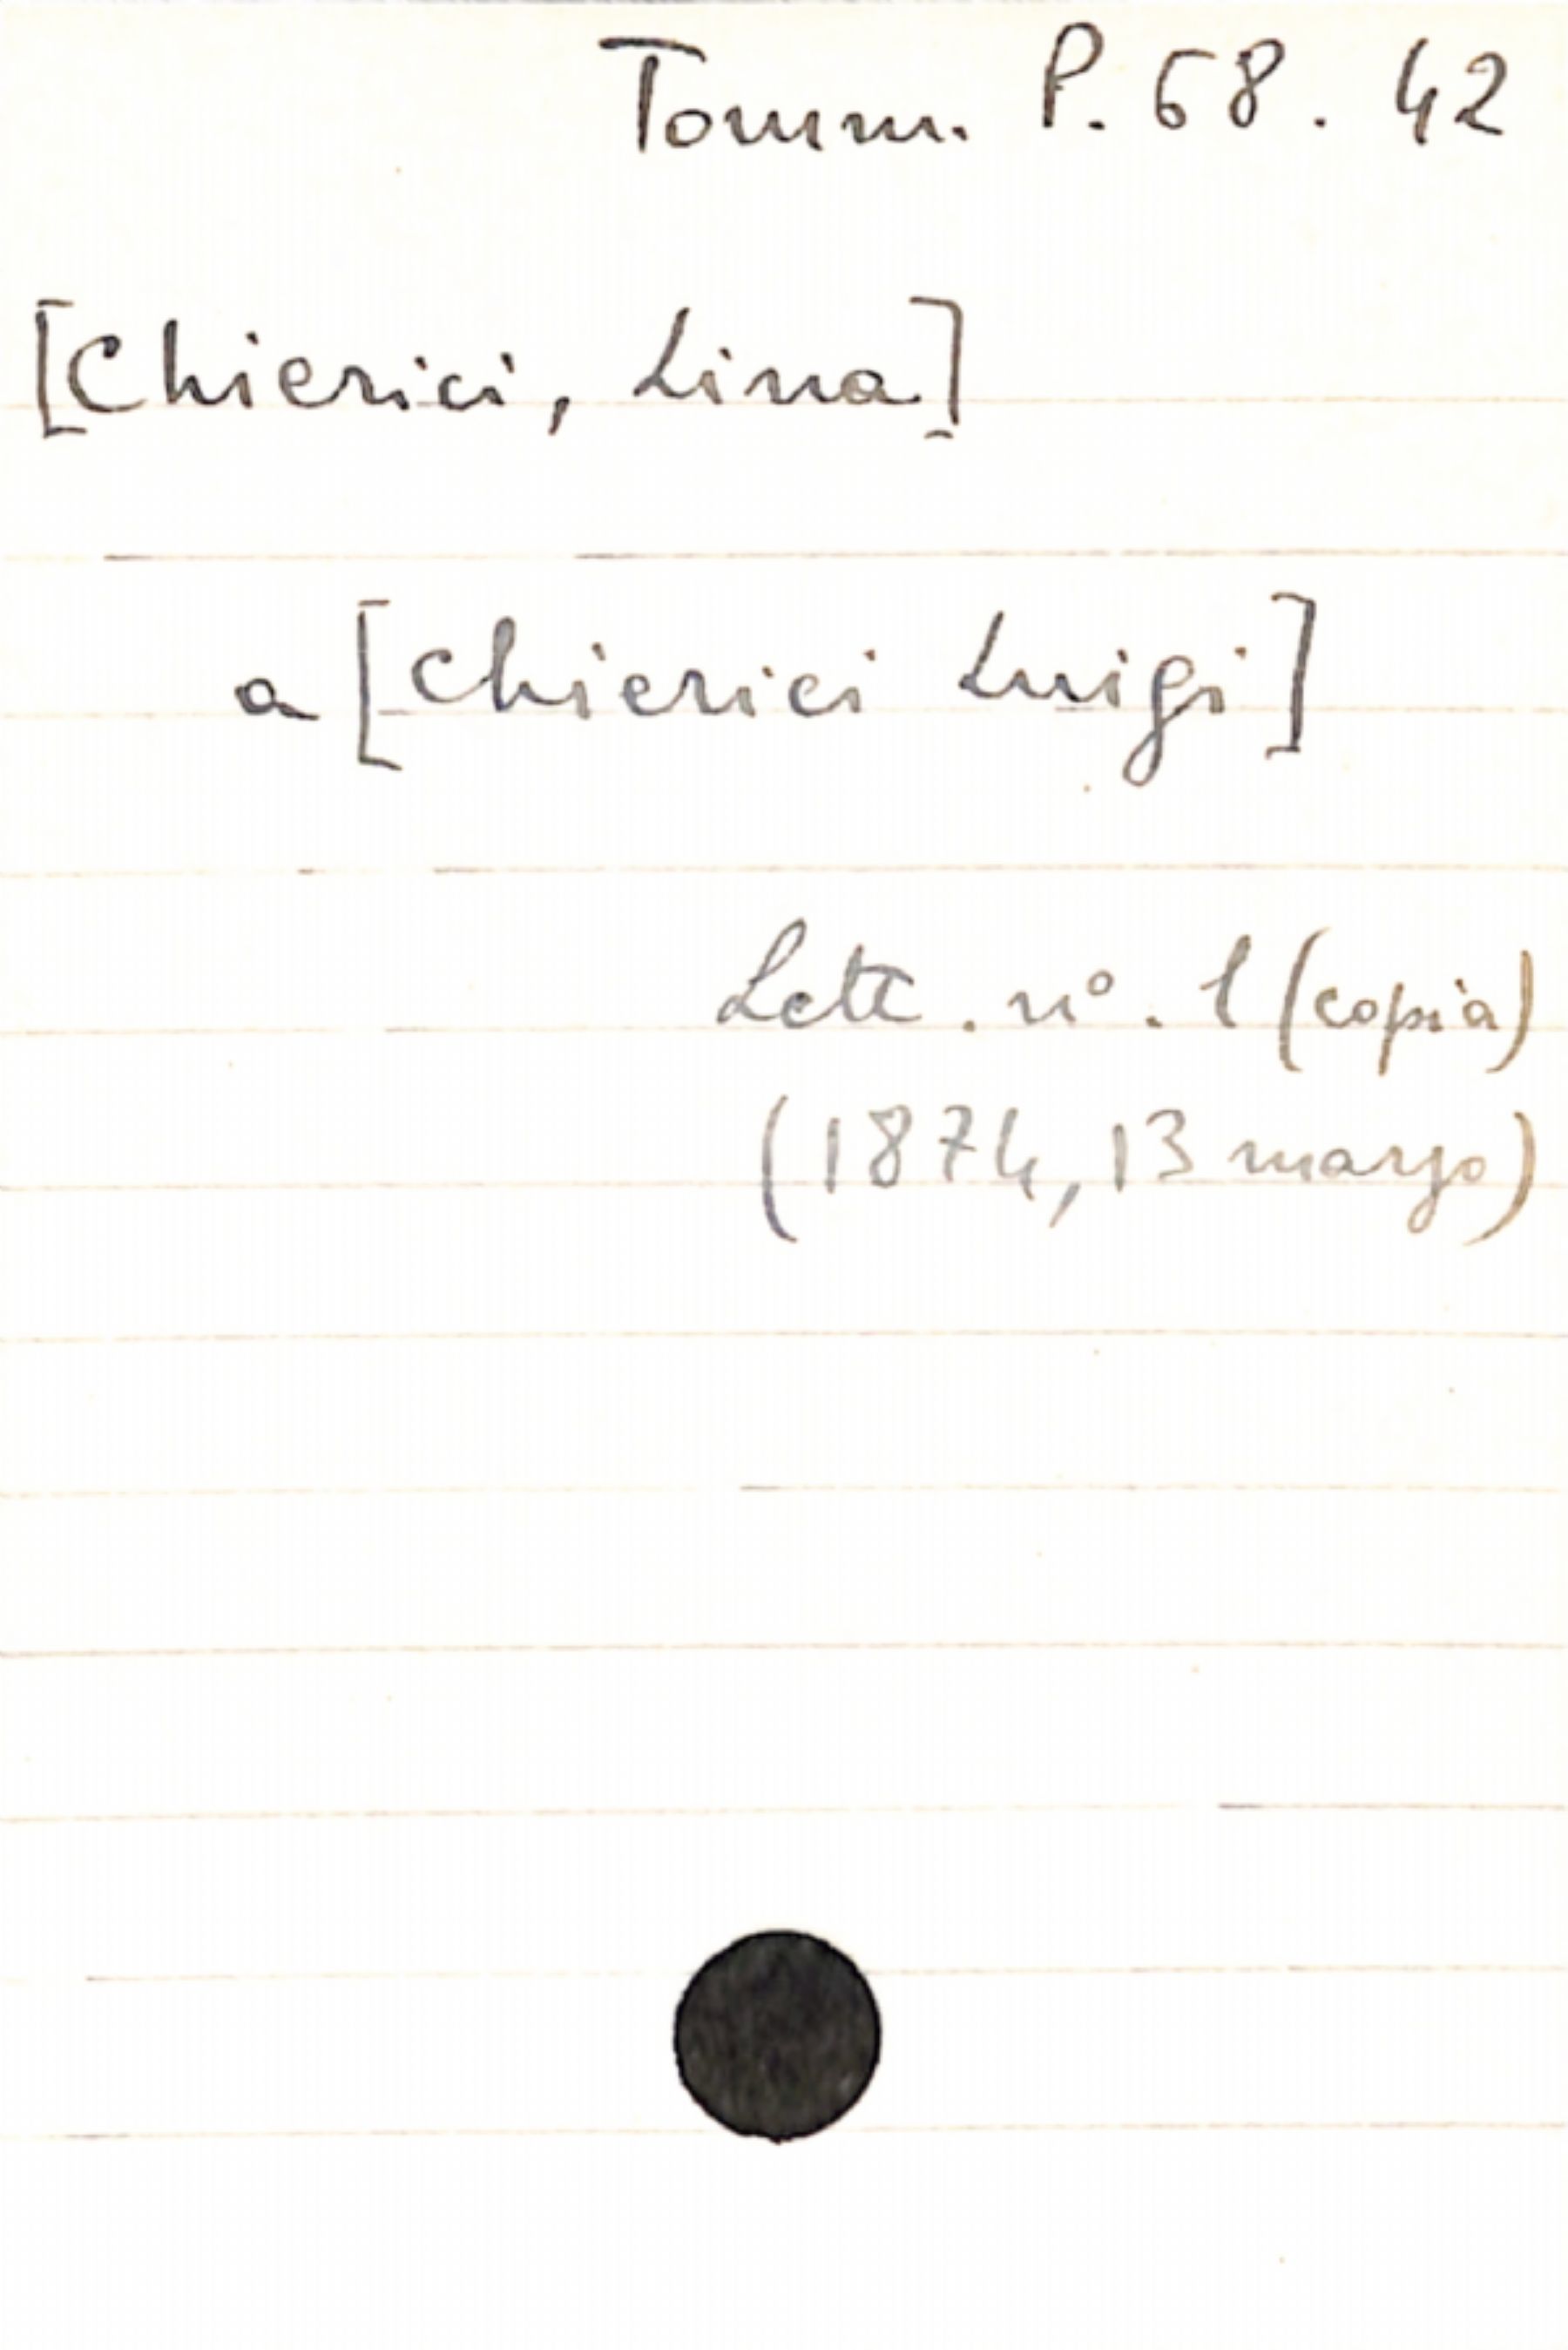 Tomm. P. 68. 42
[Chierici, Lina]
a [Chierici Luigi]
Lett. nº. 1 (copia)
(1874, 13 marzo)